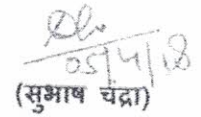 05/4/18
(सुभाष चंद्रा)